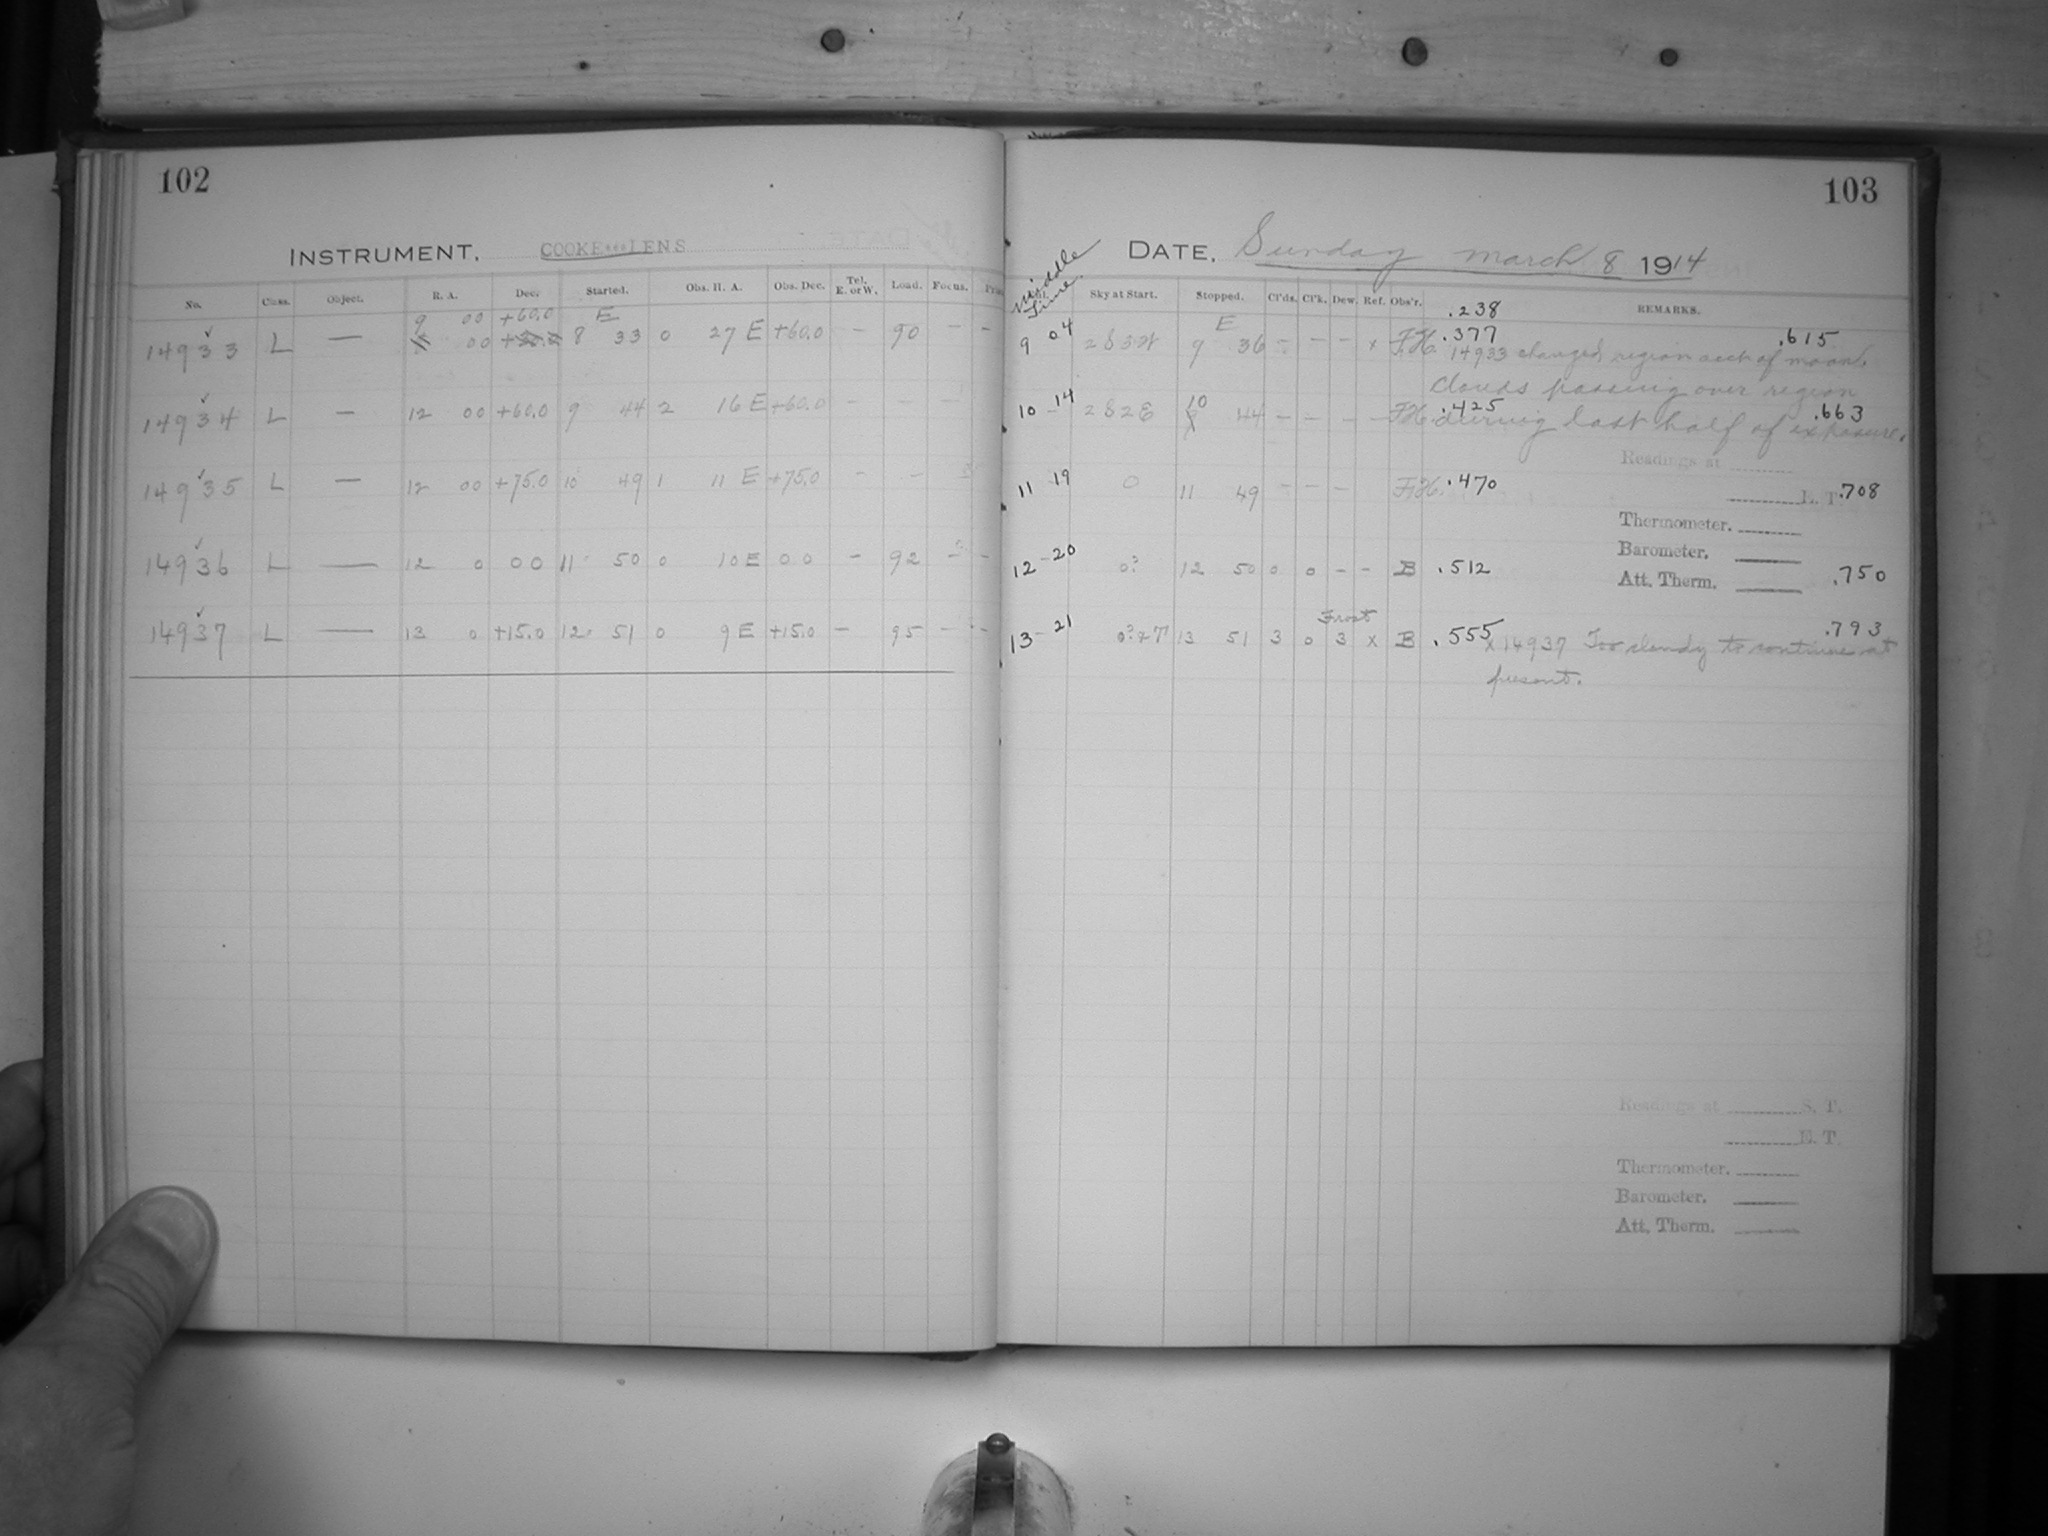 102
INSTRUMENT. COOKE LENS
No. Class. Object. R. A. Dec. Started. Obs. H. A. Obs. Dec. Tel. E. or W. Load. Focus.
9 00 +60.0 E
14933 L — 00 8 33 0 27 E +60.0 – 90 – –
14934 L — 12 00 +60.0 9 44 2 16 E +60.0 – – –
14935 L — 12 00 +75.0 10 49 1 11 E +75.0 – –
14936 L — 12 0 00 11 50 0 10 E 00 – 92 – –
14937 L — 13 0 +15.0 12 51 0 9 E +15.0 – 95 – –
103
DATE. Sunday March 8 1914
Middle Time Sky at Start. Stopped. Cl'ds. Cl'k. Dew. Ref. Obs'r. REMARKS.
.238
E
9 04 2836 – – – x F.H. .377 .615
14933 changed region acct of moon.
Clouds passing over region
10 14 2S2E 10 44 – – – – F.H. .425 .663
during last half of exposure.
Readings at
11 19 0 11 49 – – – F.H. .470 E. T. .708
Thermometer.
Barometer.
12 20 0? 12 50 0 0 – – B .512 .750
Att. Therm.
Frost
13 21 13 51 3 0 3 x B .555 .793
x 14937 Too cloudy to continue at
present.
Readings at S. T.
E. T.
Thermometer.
Barometer.
Att. Therm.